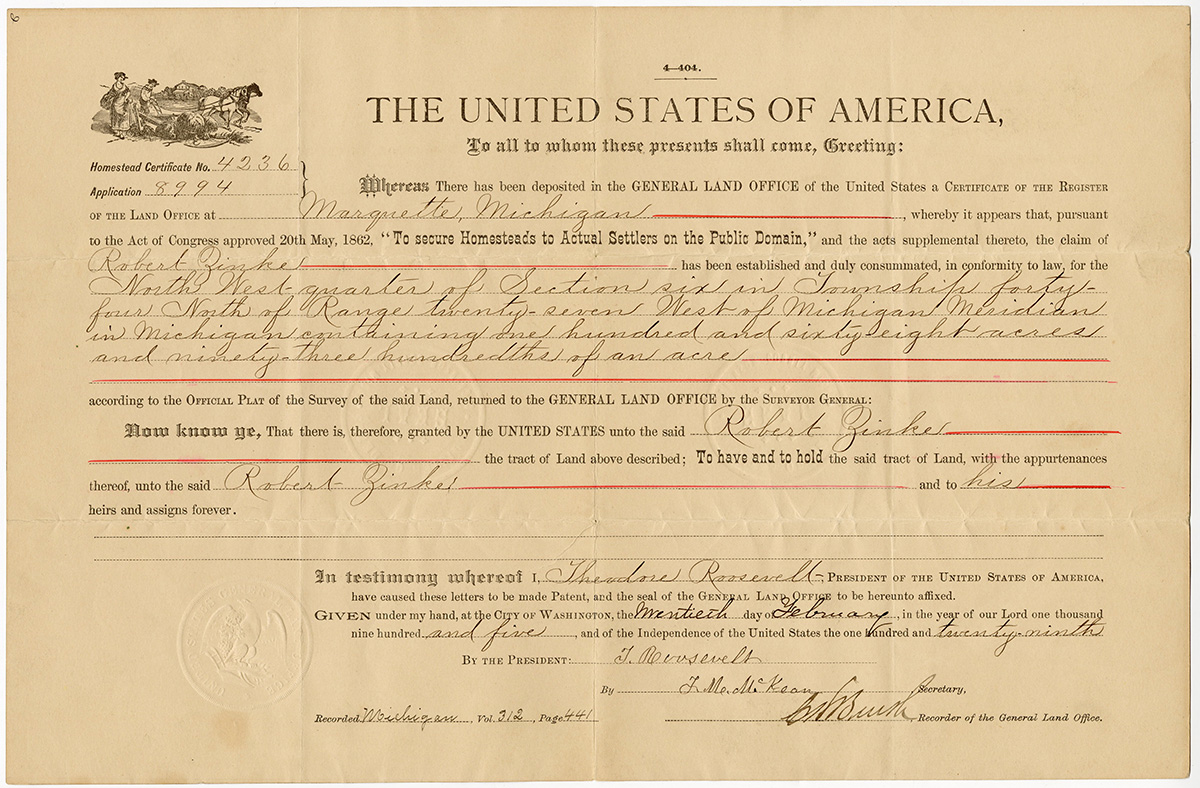 6
4—404.
THE UNITED STATES OF AMERICA,
To all to whom these presents shall come, Greeting:
Homestead Certificate No. 4236
Application 8994
Whereas There has been deposited in the GENERAL LAND OFFICE of the United States a CERTIFICATE OF THE REGISTER
OF THE LAND OFFICE at Marquette, Michigan, whereby it appears that, pursuant
to the Act of Congress approved 20th May, 1862, "To secure Homesteads to Actual Settlers on the Public Domain," and the acts supplemental thereto, the claim of
Robert Zinke has been established and duly consummated, in conformity to law, for the
North West quarter of Section six in Township forty-
four North of Range twenty-seven West of Michigan Meridian
in Michigan containing one hundred and sixty-eight acres
and ninety-three hundredths of an acre
according to the OFFICIAL PLAT of the Survey of the said Land, returned to the GENERAL LAND OFFICE by the SURVEYOR GENERAL:
Now know ye, That there is, therefore, granted by the UNITED STATES unto the said Robert Zinke
the tract of Land above described; To have and to hold the said tract of Land, with the appurtenances
thereof, unto the said Robert Zinke and to his
heirs and assigns forever.
In testimony whereof I, Theodore Roosevelt, PRESIDENT OF THE UNITED STATES OF AMERICA,
have caused these letters to be made Patent, and the seal of the GENERAL LAND OFFICE to be hereunto affixed.
GIVEN under my hand, at the CITY OF WASHINGTON, the twentieth day of February, in the year of our Lord one thousand
nine hundred and five, and of the Independence of the United States the one hundred and twenty-ninth
BY THE PRESIDENT: T. Roosevelt
By F. M. McKean Secretary,
Recorded Michigan, Vol. 312, Page 441
Recorder of the General Land Office.